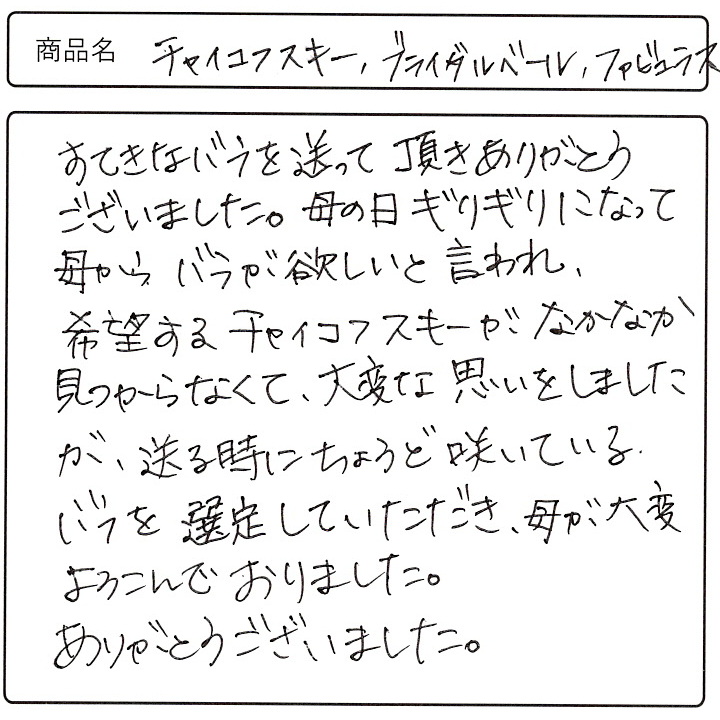 商品名 チャイコフスキー, ブライダルベール, ファビュラス
すてきなバラを送って頂きありがとう
ございました。母の日ギリギリになって
母から バラが欲しいと言われ、
希望するチャイコフスキーが なかなか
見つからなくて、大変な思いをしました
が、送る時にちょうど咲いている
バラを選定していただき、母が大変
よろこんでおりました。
ありがとうございました。